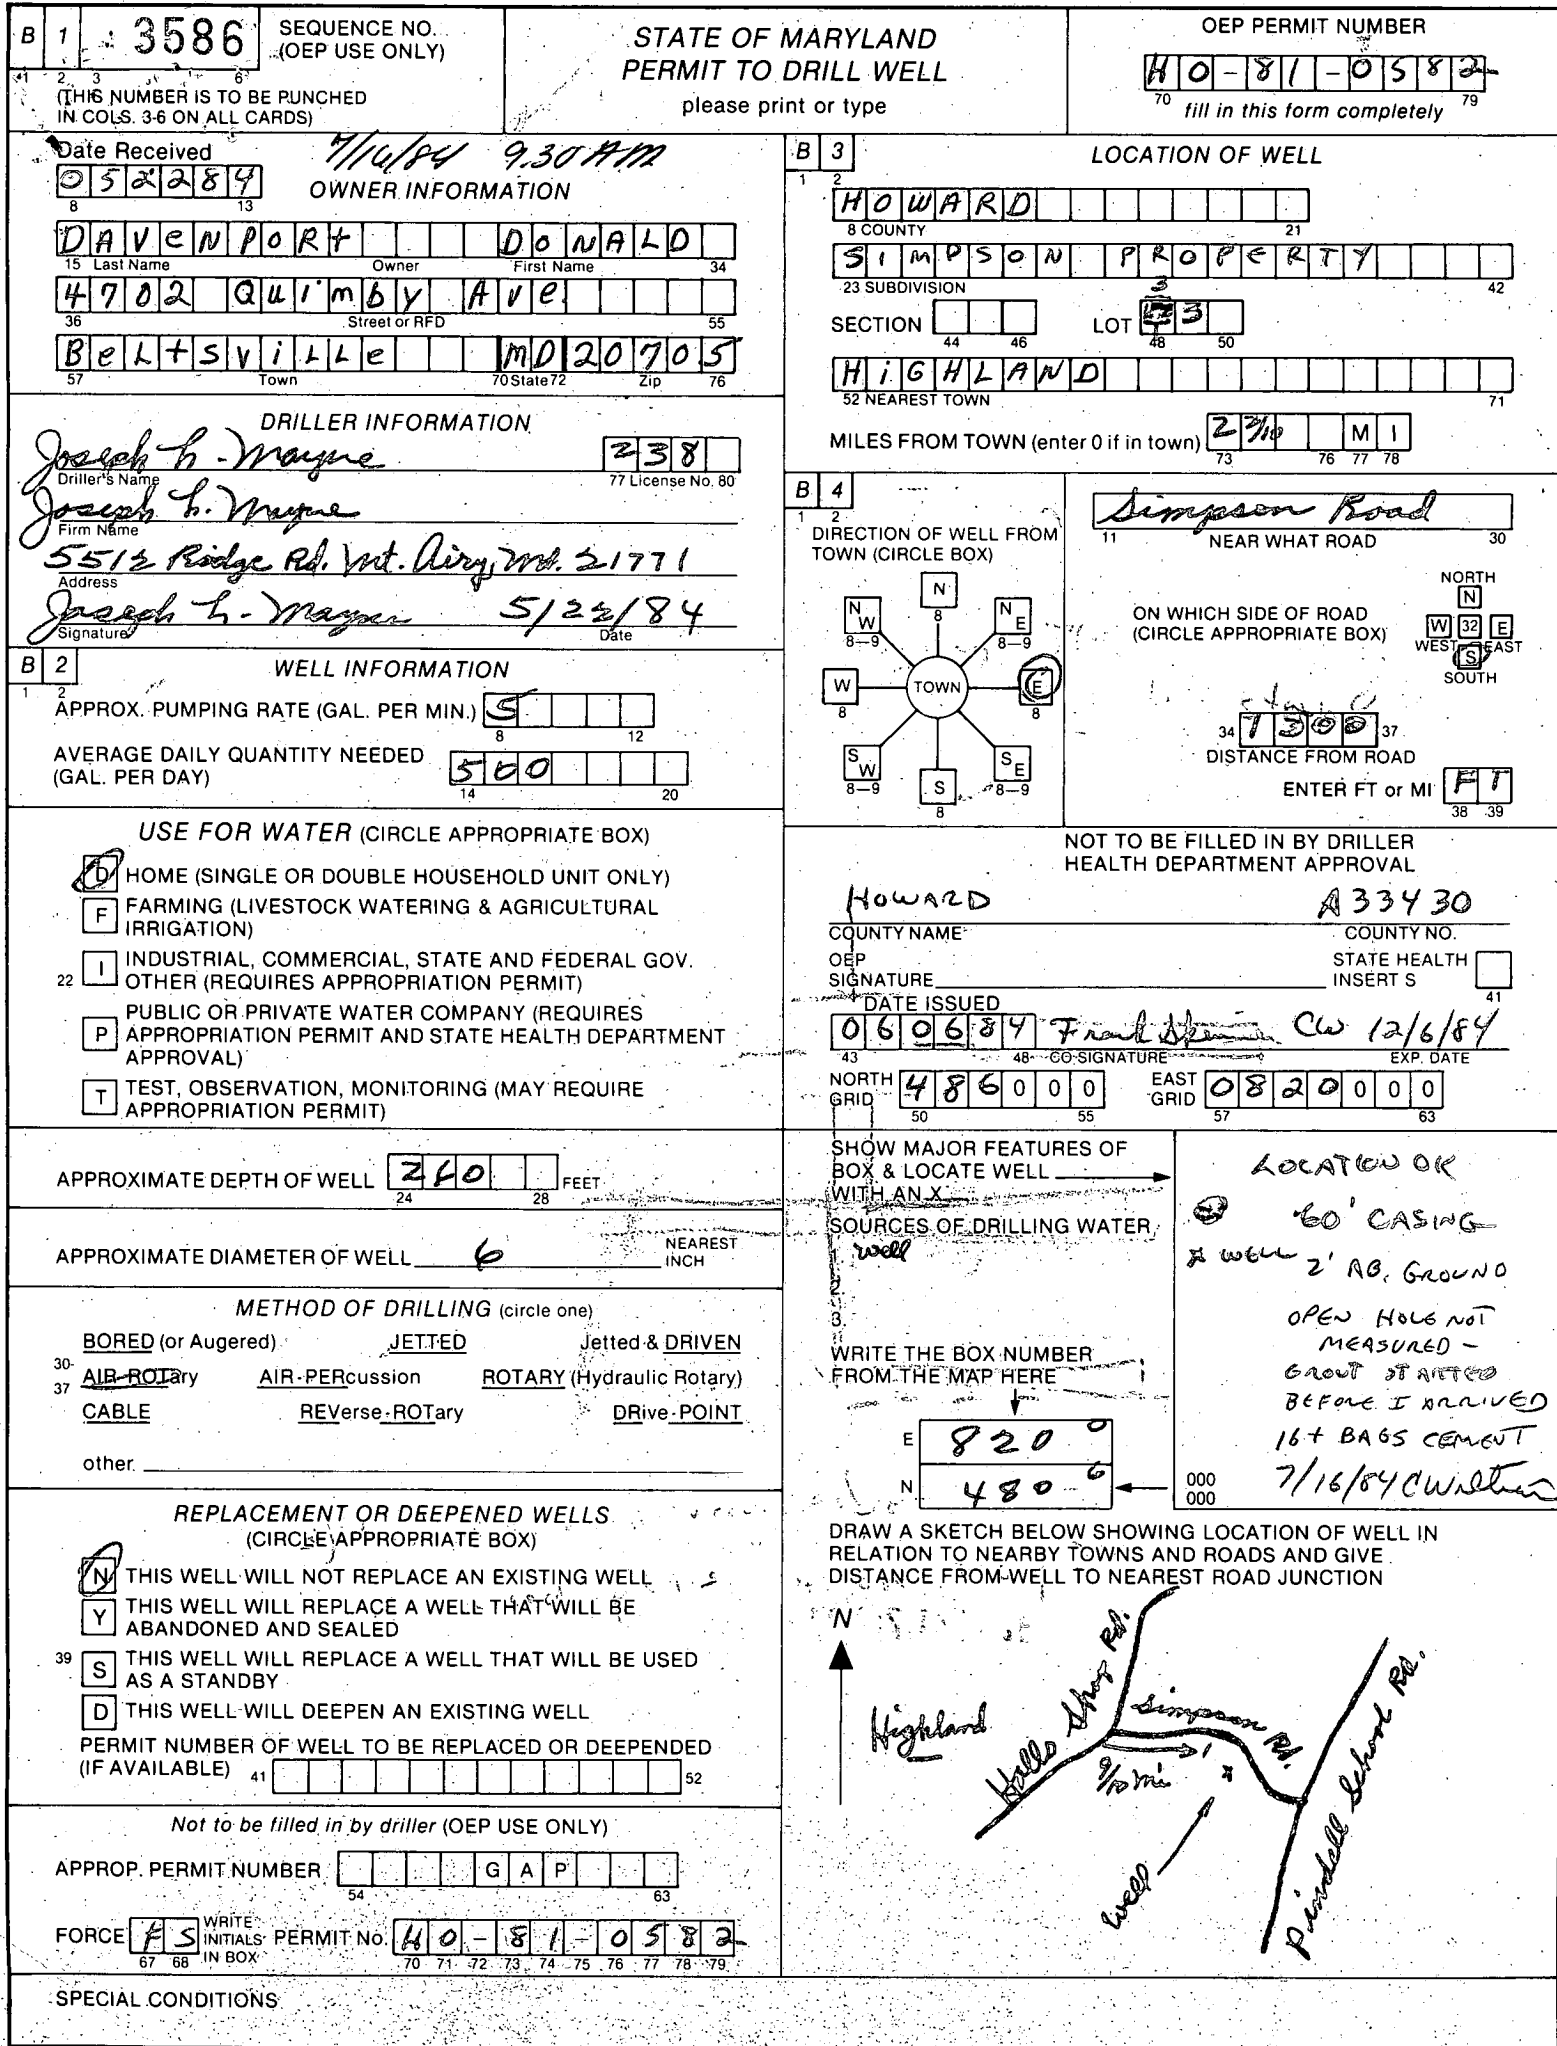 B 1 3586 SEQUENCE NO. (OEP USE ONLY)
1 2 3 6
(THIS NUMBER IS TO BE PUNCHED
IN COLS. 3-6 ON ALL CARDS)
STATE OF MARYLAND
PERMIT TO DRILL WELL
please print or type
OEP PERMIT NUMBER
HO-81-0582
70 79
fill in this form completely
Date Received 7/16/84 9:30 AM
052284
8 13
OWNER INFORMATION
DAVENPORT DONALD
15 Last Name Owner First Name 34
4702 Quimby Ave
36 Street or RFD 55
BeLtsviLLe MD 20705
57 Town 70 State 72 Zip 76
DRILLER INFORMATION
Joseph L. Mayne 238
Driller's Name 77 License No. 80
Joseph L. Mayne
Firm Name
5512 Ridge Rd. Mt. Airy, Md. 21771
Address
Joseph L. Mayne 5/22/84
Signature Date
B 2 WELL INFORMATION
1 2
APPROX. PUMPING RATE (GAL. PER MIN.) 5
8 12
AVERAGE DAILY QUANTITY NEEDED
(GAL. PER DAY) 500
14 20
USE FOR WATER (CIRCLE APPROPRIATE BOX)
D HOME (SINGLE OR DOUBLE HOUSEHOLD UNIT ONLY)
F FARMING (LIVESTOCK WATERING & AGRICULTURAL
IRRIGATION)
22 I INDUSTRIAL, COMMERCIAL, STATE AND FEDERAL GOV.
OTHER (REQUIRES APPROPRIATION PERMIT)
P PUBLIC OR PRIVATE WATER COMPANY (REQUIRES
APPROPRIATION PERMIT AND STATE HEALTH DEPARTMENT
APPROVAL)
T TEST, OBSERVATION, MONITORING (MAY REQUIRE
APPROPRIATION PERMIT)
APPROXIMATE DEPTH OF WELL 260 FEET
24 28
APPROXIMATE DIAMETER OF WELL 6 NEAREST INCH
METHOD OF DRILLING (circle one)
BORED (or Augered) JETTED Jetted & DRIVEN
30-
37
AIR-ROTary AIR-PERcussion ROTARY (Hydraulic Rotary)
CABLE REVerse-ROTary DRive-POINT
other
REPLACEMENT OR DEEPENED WELLS
(CIRCLE APPROPRIATE BOX)
N THIS WELL WILL NOT REPLACE AN EXISTING WELL
Y THIS WELL WILL REPLACE A WELL THAT WILL BE
ABANDONED AND SEALED
39 S THIS WELL WILL REPLACE A WELL THAT WILL BE USED
AS A STANDBY
D THIS WELL WILL DEEPEN AN EXISTING WELL
PERMIT NUMBER OF WELL TO BE REPLACED OR DEEPENED
(IF AVAILABLE) 41 52
Not to be filled in by driller (OEP USE ONLY)
APPROP. PERMIT NUMBER G A P
54 63
FORCE FS WRITE INITIALS IN BOX PERMIT No. HO-81-0582
67 68 70 71 72 73 74 75 76 77 78 79
SPECIAL CONDITIONS
B 3 LOCATION OF WELL
1 2
HOWARD
8 COUNTY 21
SIMPSON PROPERTY
23 SUBDIVISION 42
SECTION LOT 3 3
44 46 48 50
HiGHLAND
52 NEAREST TOWN 71
MILES FROM TOWN (enter 0 if in town) 2 MI
73 76 77 78
B 4
1 2
DIRECTION OF WELL FROM
TOWN (CIRCLE BOX)
N
8
NW NE
8-9 8-9
W TOWN E
8 8
SW SE
8-9 8-9
S
8
Simpson Road
11 NEAR WHAT ROAD 30
ON WHICH SIDE OF ROAD
(CIRCLE APPROPRIATE BOX)
NORTH
N
W 32 E
WEST EAST
S
SOUTH
34 1300 37
DISTANCE FROM ROAD
ENTER FT or MI FT
38 39
NOT TO BE FILLED IN BY DRILLER
HEALTH DEPARTMENT APPROVAL
HOWARD A33430
COUNTY NAME COUNTY NO.
OEP SIGNATURE STATE HEALTH INSERT S
41
DATE ISSUED
060684 Frank Skinner CW 12/6/84
43 48 CO SIGNATURE EXP. DATE
NORTH GRID 486000 EAST GRID 0820000
50 55 57 63
SHOW MAJOR FEATURES OF
BOX & LOCATE WELL
WITH AN X
SOURCES OF DRILLING WATER
1. well
2.
3.
WRITE THE BOX NUMBER
FROM THE MAP HERE
E 820 0
N 480 6
000
000
LOCATION OK
60' CASING
x WELL 2' AB. GROUND
OPEN HOLE NOT
MEASURED -
GROUT STARTED
BEFORE I ARRIVED
16+ BAGS CEMENT
7/16/84
DRAW A SKETCH BELOW SHOWING LOCATION OF WELL IN
RELATION TO NEARBY TOWNS AND ROADS AND GIVE
DISTANCE FROM WELL TO NEAREST ROAD JUNCTION
N
Highland
Halls Shop Rd.
Simpson Rd.
9/10 mi
x
Well
Pindell School Rd.